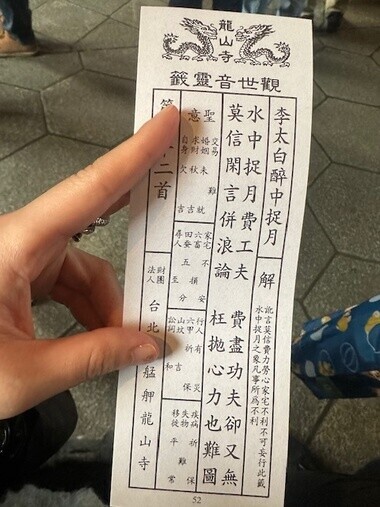 龍山寺
觀世音靈籤
李太白醉中捉月
解
訛言莫信費力勞心家宅不利不可妄行此籤
水中捉月之象凡事所為不利
水中捉月費工夫 費盡功夫卻又無
莫信閑言併浪論 枉拋心力也難圖
聖意
交易 難
婚姻 未 就
求財 秋 吉
自身 欠 吉
家宅 不 安
六畜 損
田蚕 五 分
尋人 至
行人 有 災
六甲 祈 保
山坟 吉
訟詞 和
疾病 祈 保
失物 難
移徙 平 常
二首
財團法人 台北艋舺龍山寺
52